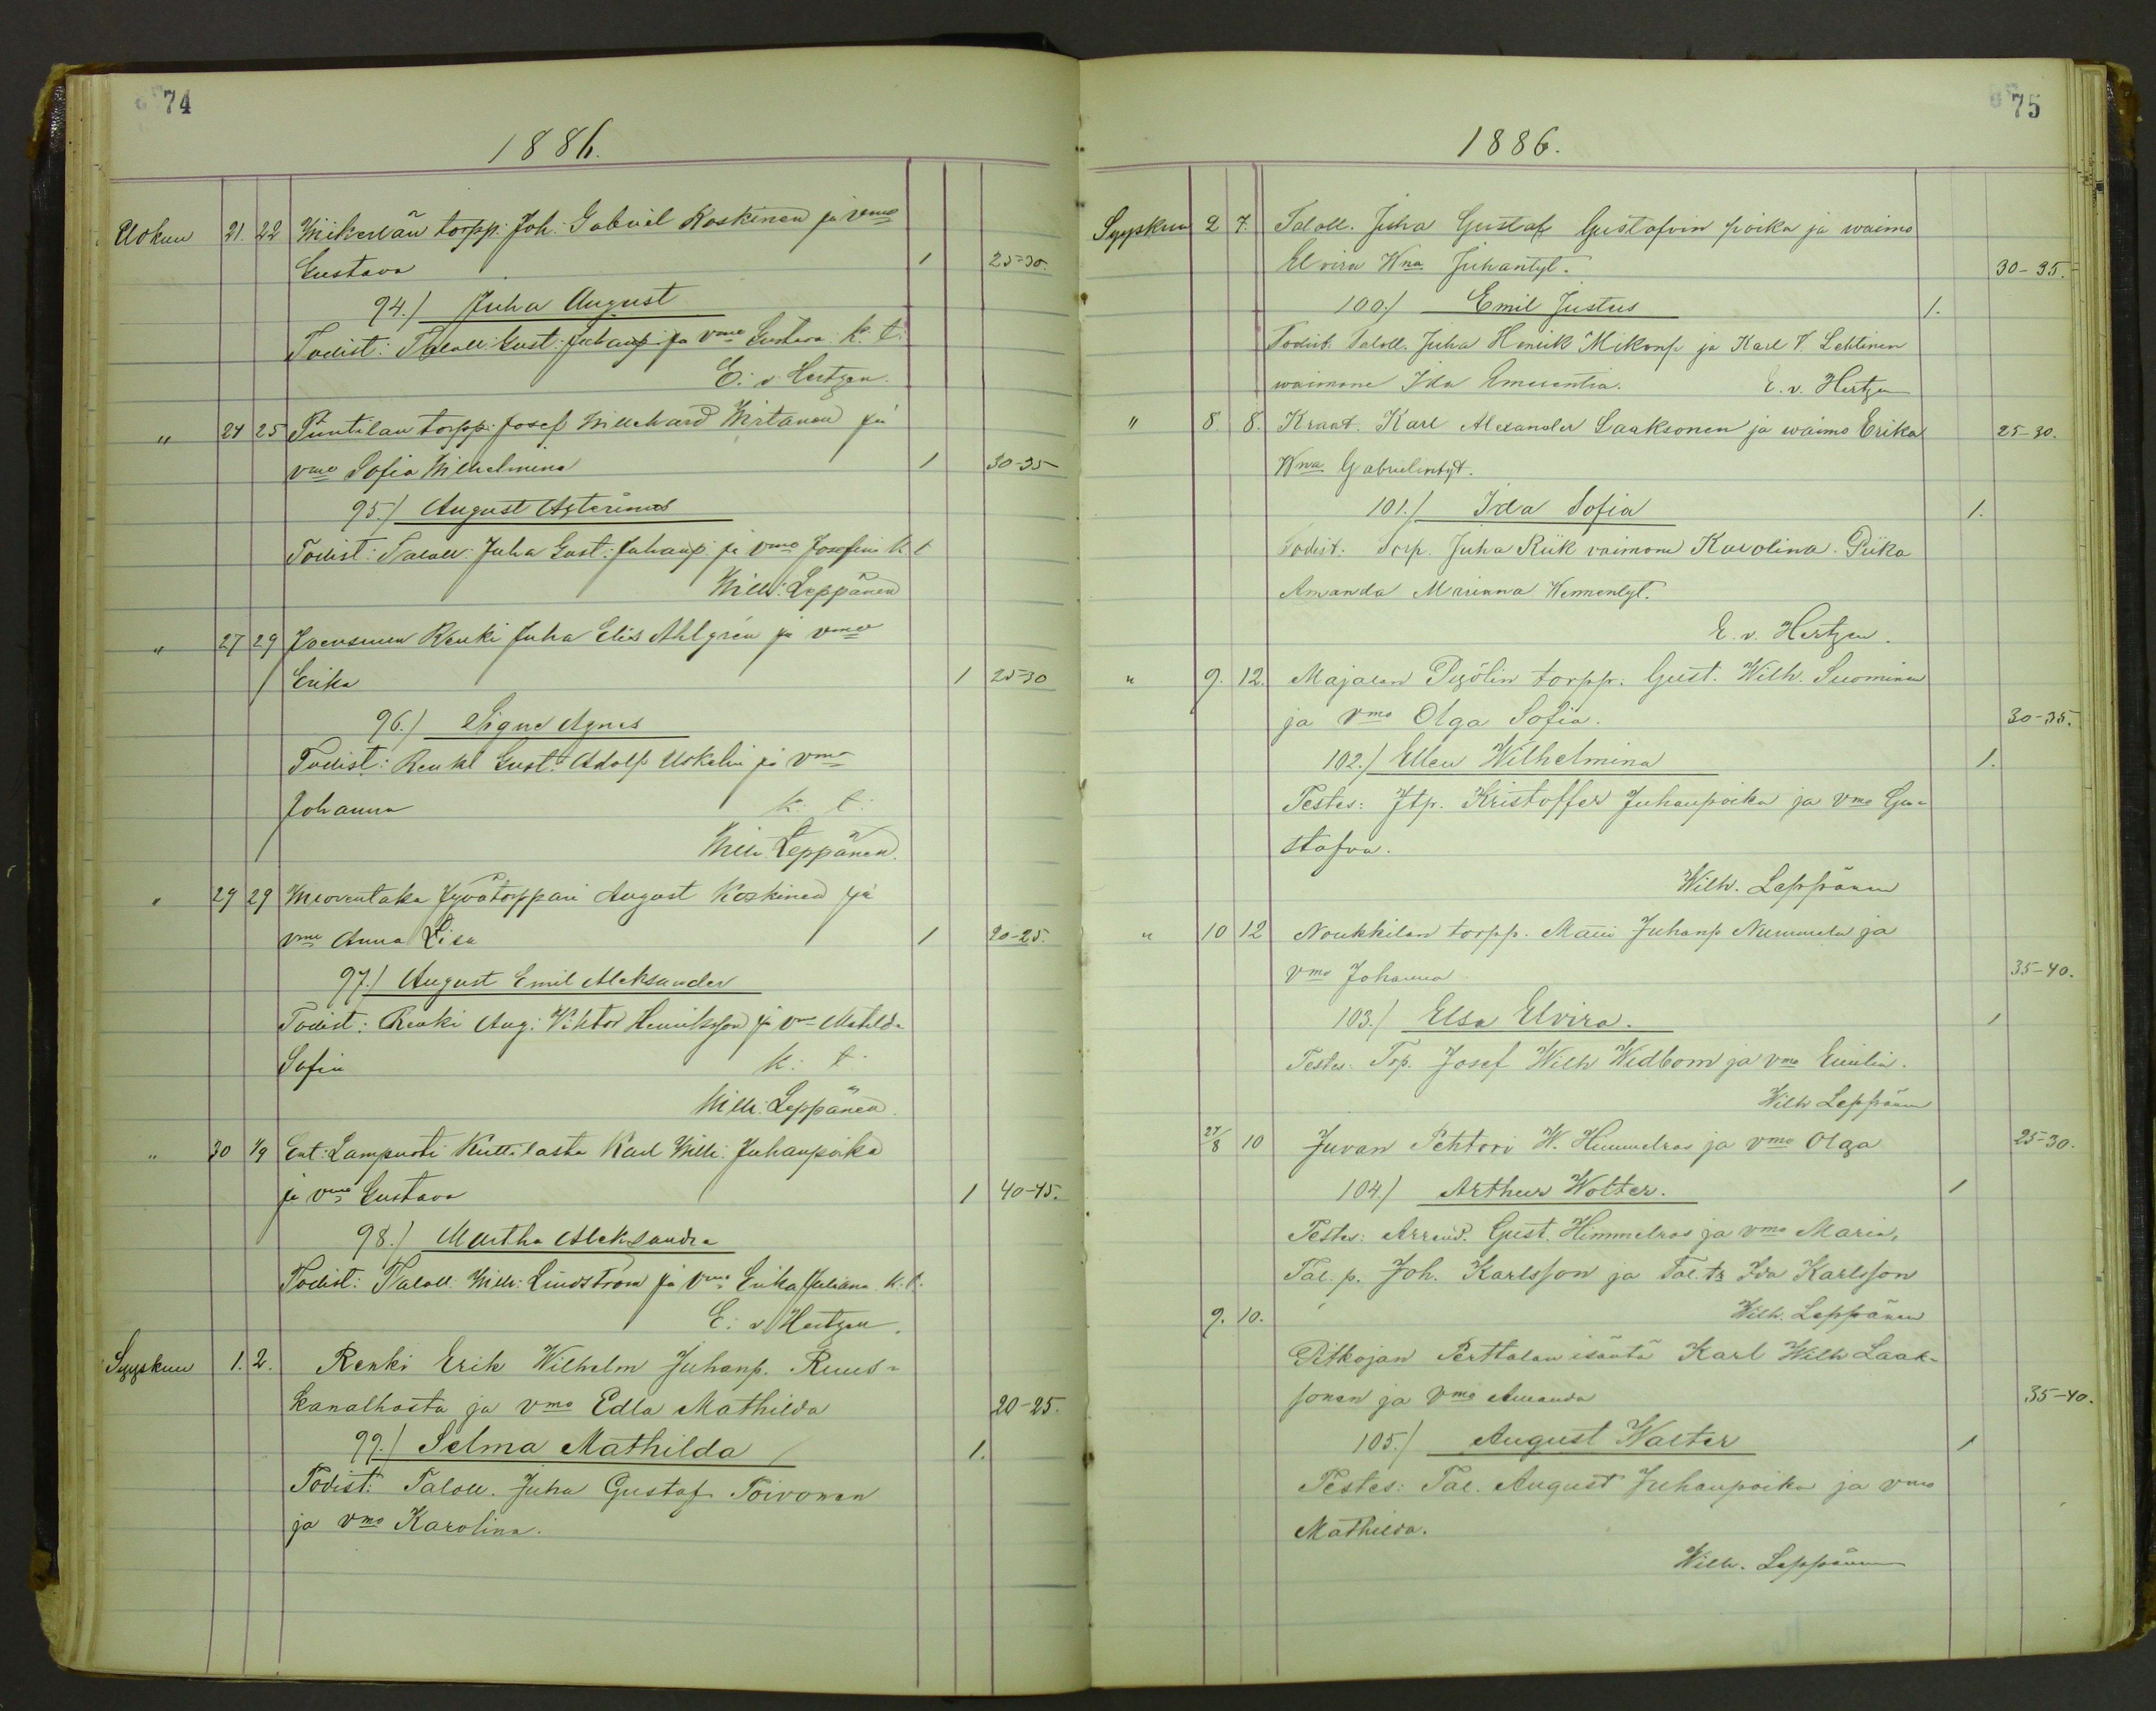 74
1886.
Elokuu 21. 22 torpp. Joh. Gabriel Koskinen ja vmo
Gustava 1 25-30.
94.) Juha August
Todist: Taloll: Gust: Juhanp: ja vmo Gustava k. t.
E. v. Hertzen.
" 24 25 Puntilan torpp: Josef Willehard Wirtanen ja
vmo Sofia Wilhelmina 1 30-35
95.) August
Todist: Taloll: Juha Gust: Juhanp: ja vmo Josefina k t
Wilh: Leppänen
" 27 29 Joensuun Renki Juha Elis Ahlgrén ja vmo
Erika 1 25-30
96.) Signe Agnes
Todist: Renki Gust: Adolf Uskelin ja vmo
Johanna k: t:
Wilh. Leppänen.
" 29 29 Jyvätorppari August Koskinen ja
vmo Anna Lisa 1 20-25.
97.) August Emil Aleksander
Todist: Renki Aug: Viktor Henriksson ja vmo Matilda
Sofia k: t:
Wilh: Leppänen.
" 30 1/9 Ent: Lampuoti Kuttilasta Karl Wilh: Juhanpoika
ja vmo Gustava 1 40-45.
98.) Martha Aleksandra
Todist: Taloll. Wilh: Lindström ja vmo Erika Juliana k. t.
E. v. Hertzen.
Syyskuu 1. 2. Renki Erik Wilhelm Juhanp. Ruus-
kanalhosta ja vmo Edla Mathilda 20-25.
99.) Selma Mathilda 1.
Todist: Taloll. Juha Gustaf Toivonen
ja vmo Karolina.
75
1886.
Syyskuu 2 7. Taloll. Juha Gustaf Gustafvin poika ja waimo
Elvira Wna Juhantyt. 30-35.
100.) Emil Justus 1.
Todist. Taloll. Juha Henrik Mikonp ja Karl V. Lehtinen
waimone Ida Emerentia. E. v. Hertzen
" 8. 8. Kraat. Karl Alexander Laaksonen ja waimo Erika 25-30.
Wna Gabrielintyt.
101.) Ida Sofia 1.
Todist. Torp. Juha Riik vaimone Karolina. Piika
Amanda Marianna
E. v. Hertzen.
" 9. 12. Majalan torpp. Gust. Wilh. Suominen
ja vmo Olga Sofia. 30-35.
102.) Ellen Wilhelmina 1.
Testes: Jtp. Kristoffer Juhanpoika ja vmo Gu-
stafva.
Wilh. Leppänen
" 10 12 Noukkilan torpp. Matti Juhanp Nummela ja
vmo Johanna 35-40.
103.) Elsa Elvira. 1
Testes: Trp. Josef Wilh Widbom ja vmo Emilia.
Wilh Leppänen
27/8 10 Juvan Pehtori W. Himmelros ja vmo Olga 25-30.
104.) Arthur Wolter. 1
Testes: Arrend. Gust. Himmelros ja vmo Maria,
Tal. p. Joh. Karlsson ja Tal. tr Ida Karlsson
9. 10. Wilh. Leppänen
Pitkojan Perttalan isäntä Karl Wilh Laak-
sonen ja vmo Amanda 35-40.
105.) August Walter 1
Testes: Tal. August Juhanpoika ja vmo
Mathilda.
Wilh. Leppänen